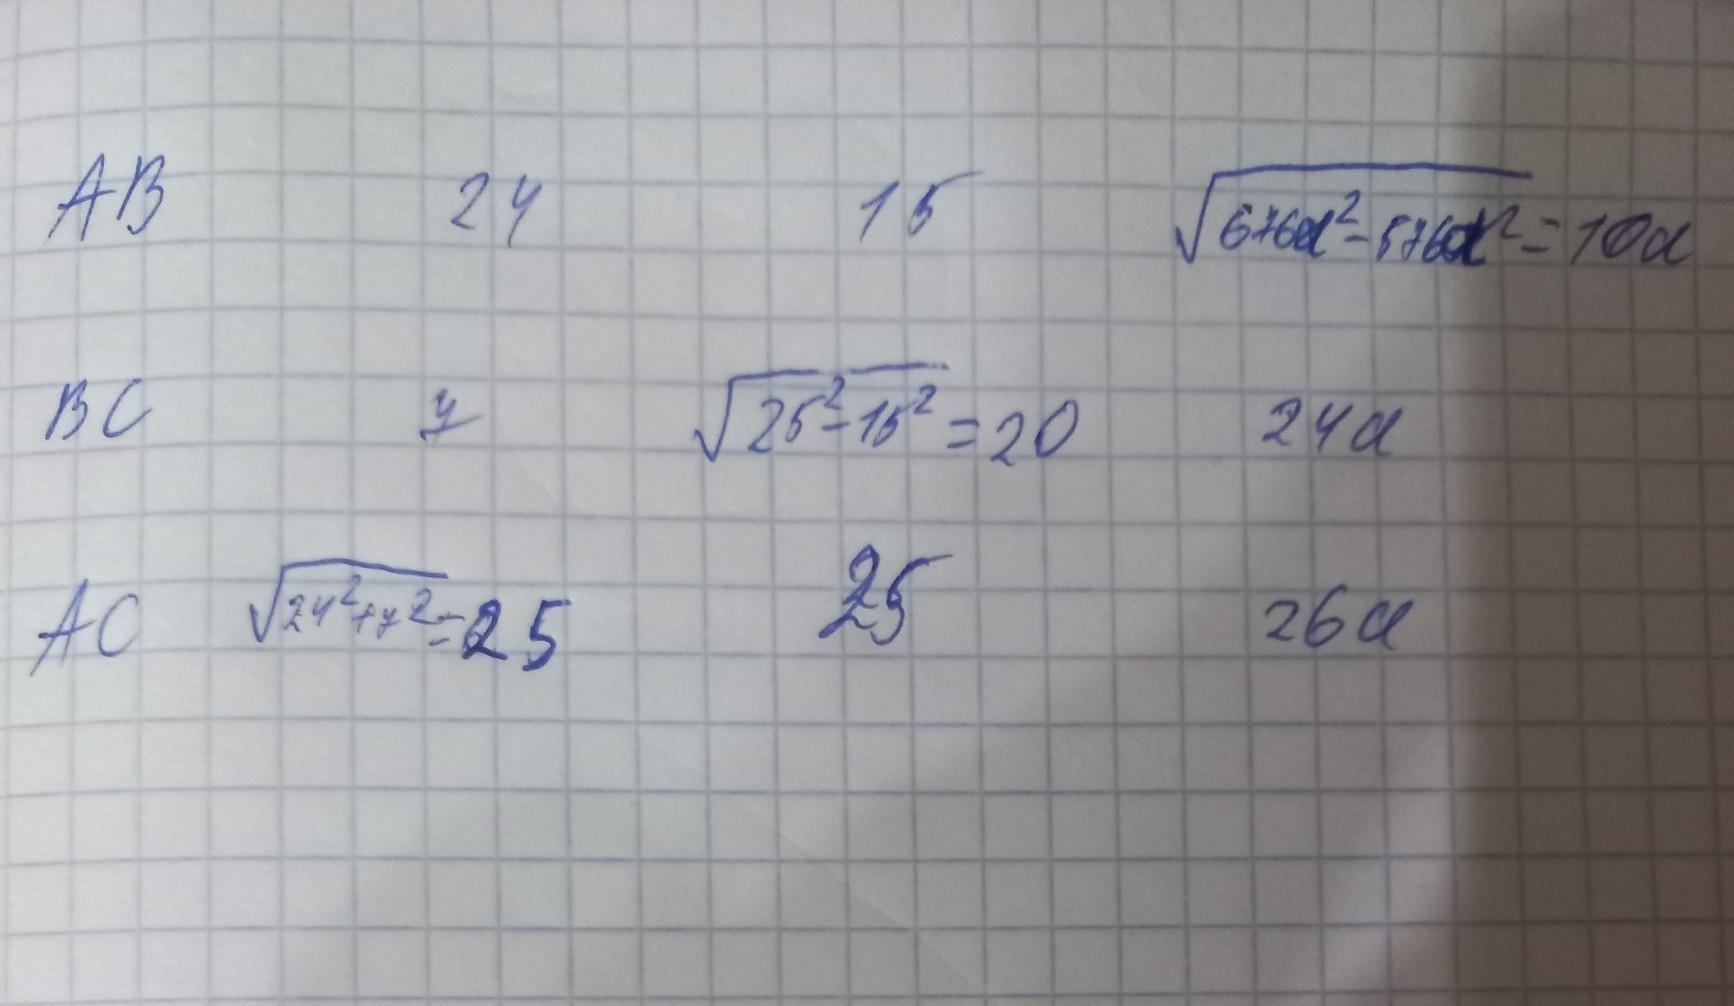 AB 24 15 √676a²-576a² = 10a
BC 7 √25²-15² = 20 24a
AC √24²+7² = 25 25 26a